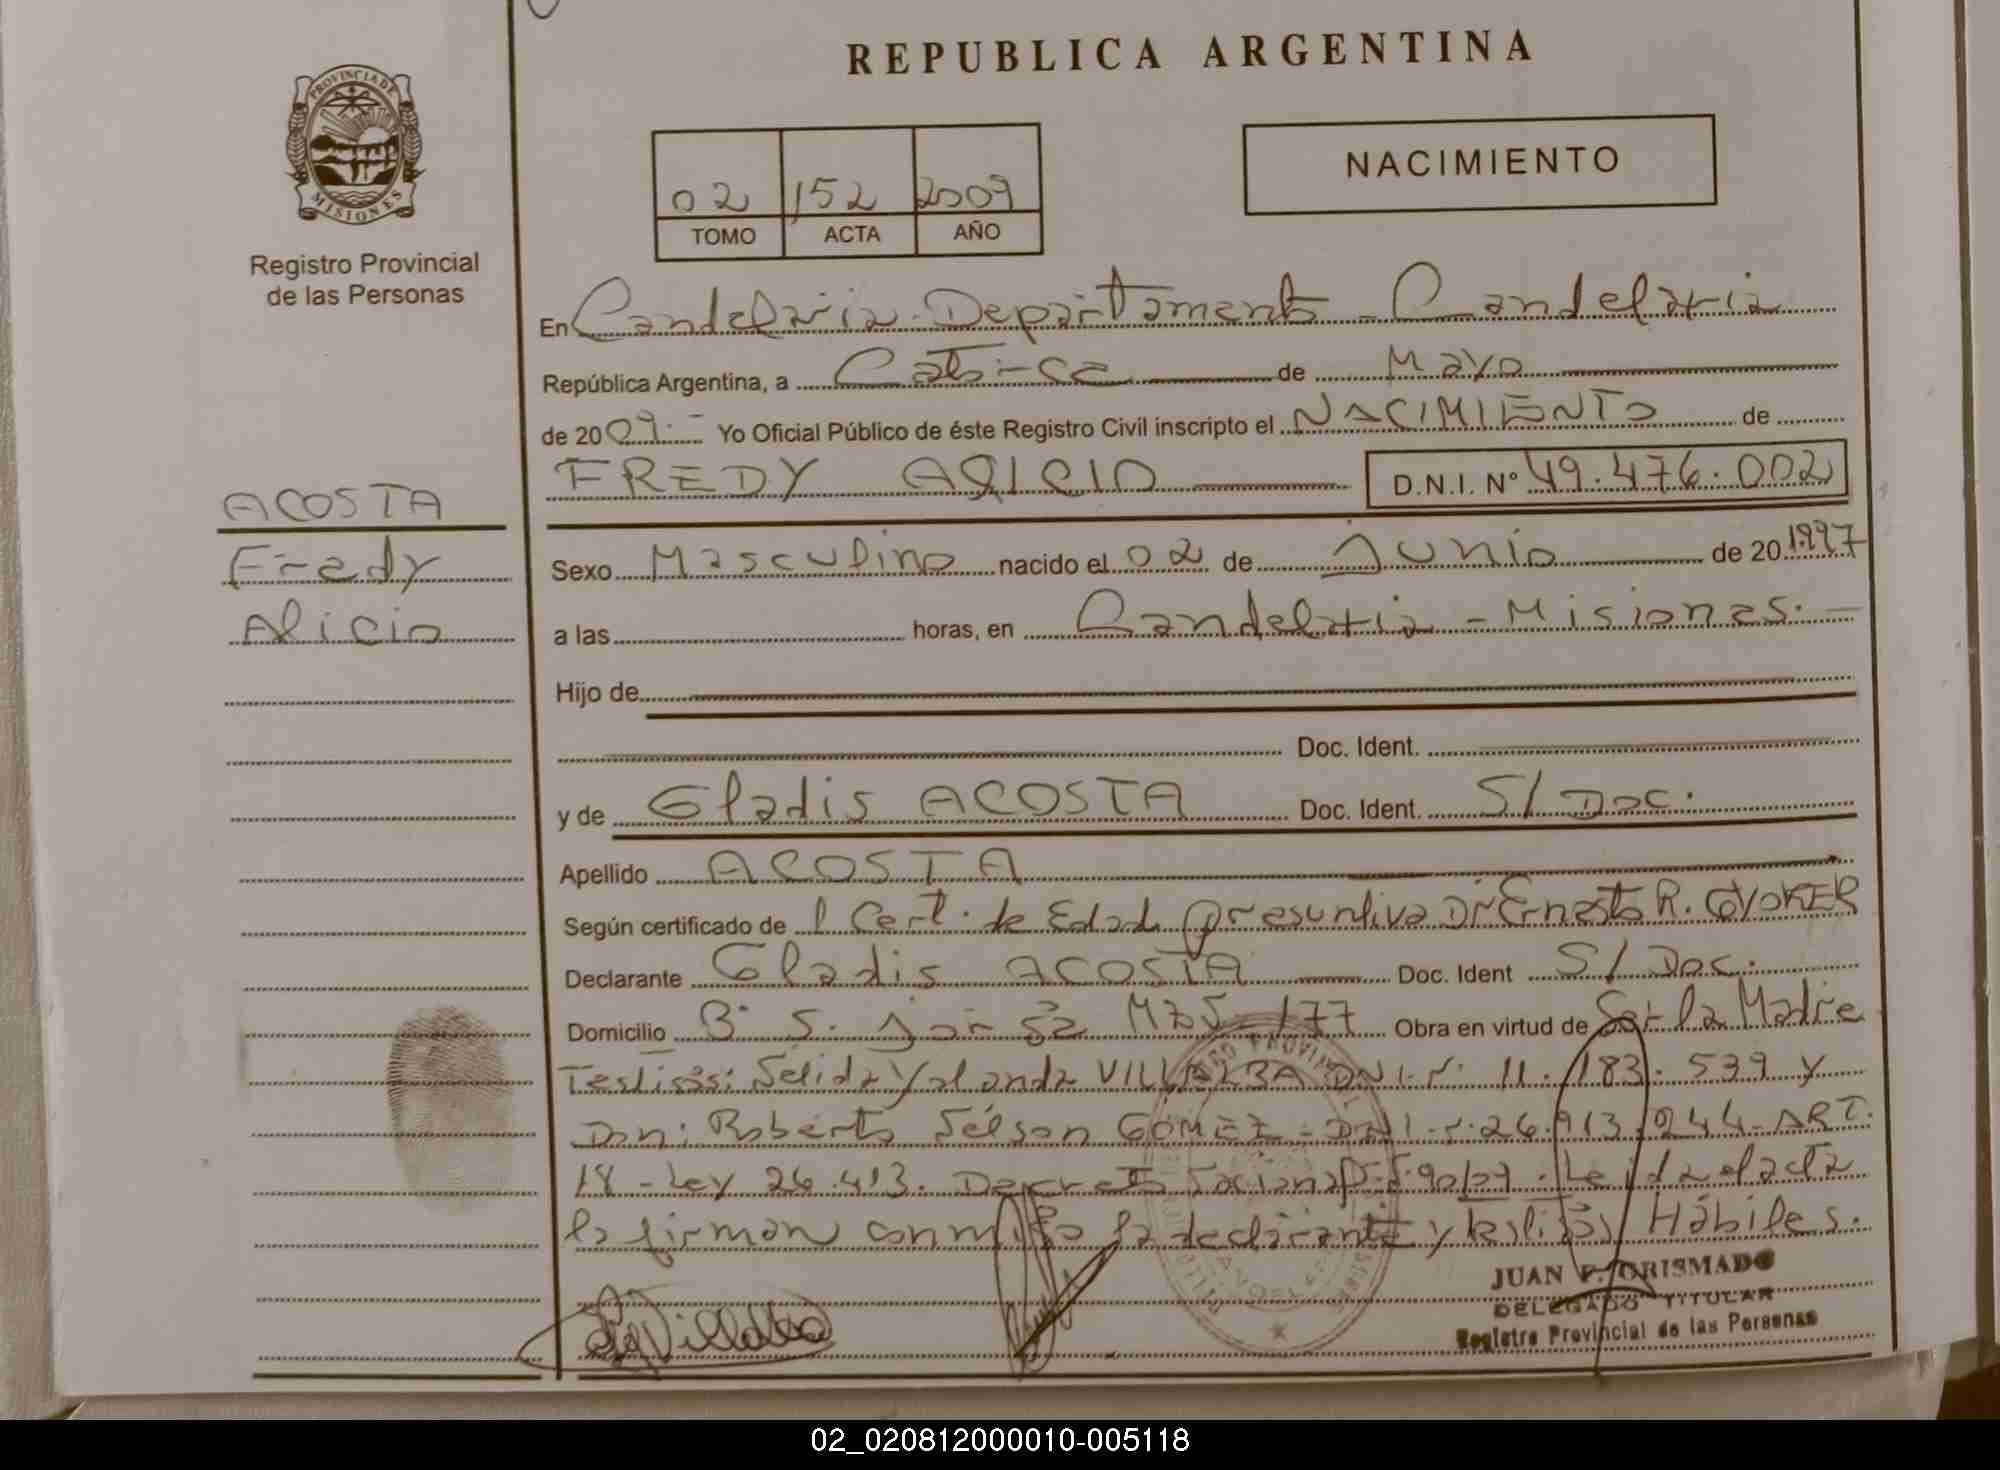 REPUBLICA ARGENTINA
PROVINCIA DE
MISIONES
Registro Provincial
de las Personas
NACIMIENTO
02 152 2009
TOMO ACTA AÑO
En Candelaria - Departamento - Candelaria
República Argentina, a Catorce de Mayo
de 2009.- Yo Oficial Público de éste Registro Civil inscripto el NACIMIENTO de
FREDY ALICIO D.N.I. Nº 49.476.002
ACOSTA
Fredy
Alicio
Sexo Masculino nacido el 02 de Junio de 20 1997
a las horas, en Candelaria - Misiones. -
Hijo de
Doc. Ident.
y de Gladis ACOSTA Doc. Ident. S/ Doc.
Apellido ACOSTA
Según certificado de 1 Cert. de Edad presuntiva Dr Ernesto R.
Declarante Gladis ACOSTA Doc. Ident S/ Doc.
Domicilio Bº S. Jorge 177 Obra en virtud de Ser la Madre
Testigos: Nelida Yolanda VILLALBA DNI. Nº 11.183.539 y
Don: Roberto Nelson GOMEZ - DNI. Nº 26.913.044 - ART.
18 - Ley 26.413. Decreto Nacional Leida el acta
la firman conmigo la declarante y testigos Hábiles.
JUAN F. GRISMADO
DELEGADO TITULAR
Registro Provincial de las Personas
02_020812000010-005118